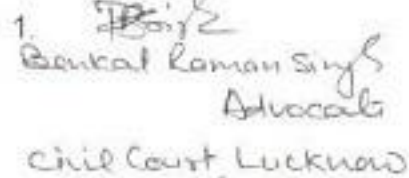 1.
Benkat Raman Singh
Advocate
Civil Court, Lucknow